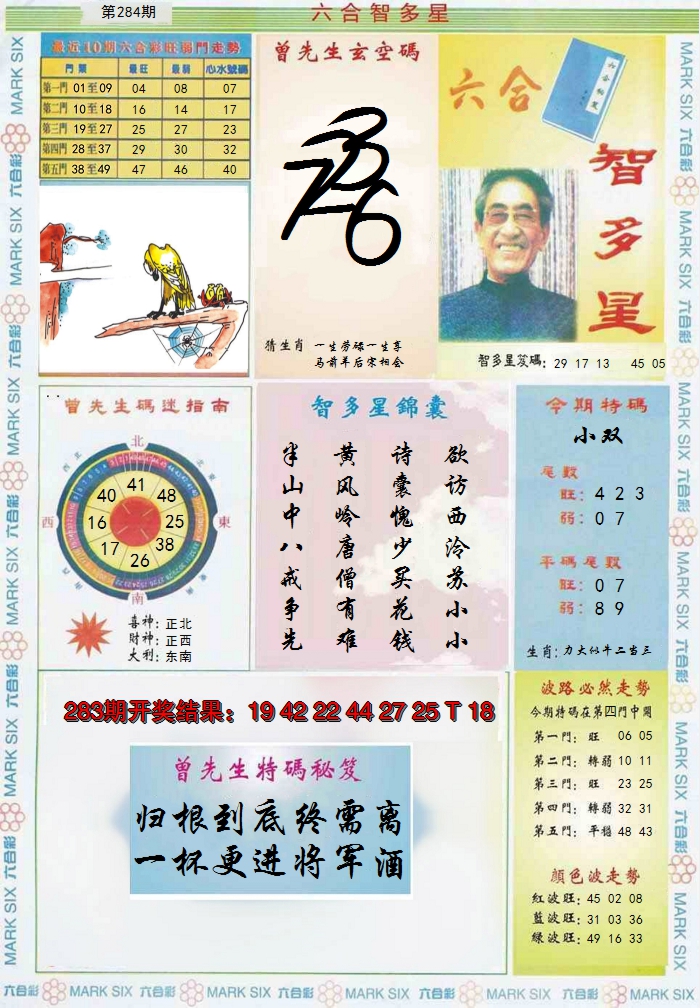 第284期
六合智多星
最近10期六合彩旺弱門走勢
門類 最旺 最弱 心水號碼
第一門 01至09 04 08 07
第二門 10至18 16 14 17
第三門 19至27 25 27 23
第四門 28至37 29 30 32
第五門 38至49 47 46 40
曾先生玄空碼
猜生肖 一生劳碌一生享
马前羊后宋相会
六合
智多星
智多星笈碼: 29 17 13 45 05
曾先生碼迷指南
北
西北
东北
西
東
南
41
48
25
38
26
17
16
40
喜神: 正北
財神: 正西
大利: 东南
智多星錦囊
欲访西泠苏小小
诗囊愧少买花钱
黄风岭唐僧有难
半山中八戒争先
今期特碼
小双
尾數
旺: 4 2 3
弱: 0 7
平碼尾數
旺: 0 7
弱: 8 9
生肖: 力大似牛二当三
283期开奖结果: 19 42 22 44 27 25 T 18
曾先生特碼秘笈
归根到底终需离
一杯更进将军酒
波路必然走勢
今期特碼在第四門中開
第一門: 旺 06 05
第二門: 轉弱 10 11
第三門: 旺 23 25
第四門: 轉弱 32 31
第五門: 平穩 48 43
顏色波走勢
紅波旺: 45 02 08
藍波旺: 31 03 36
綠波旺: 49 16 33
六合彩 MARK SIX 六合彩 MARK SIX 六合彩 MARK SIX 六合彩 MARK SIX 六合彩